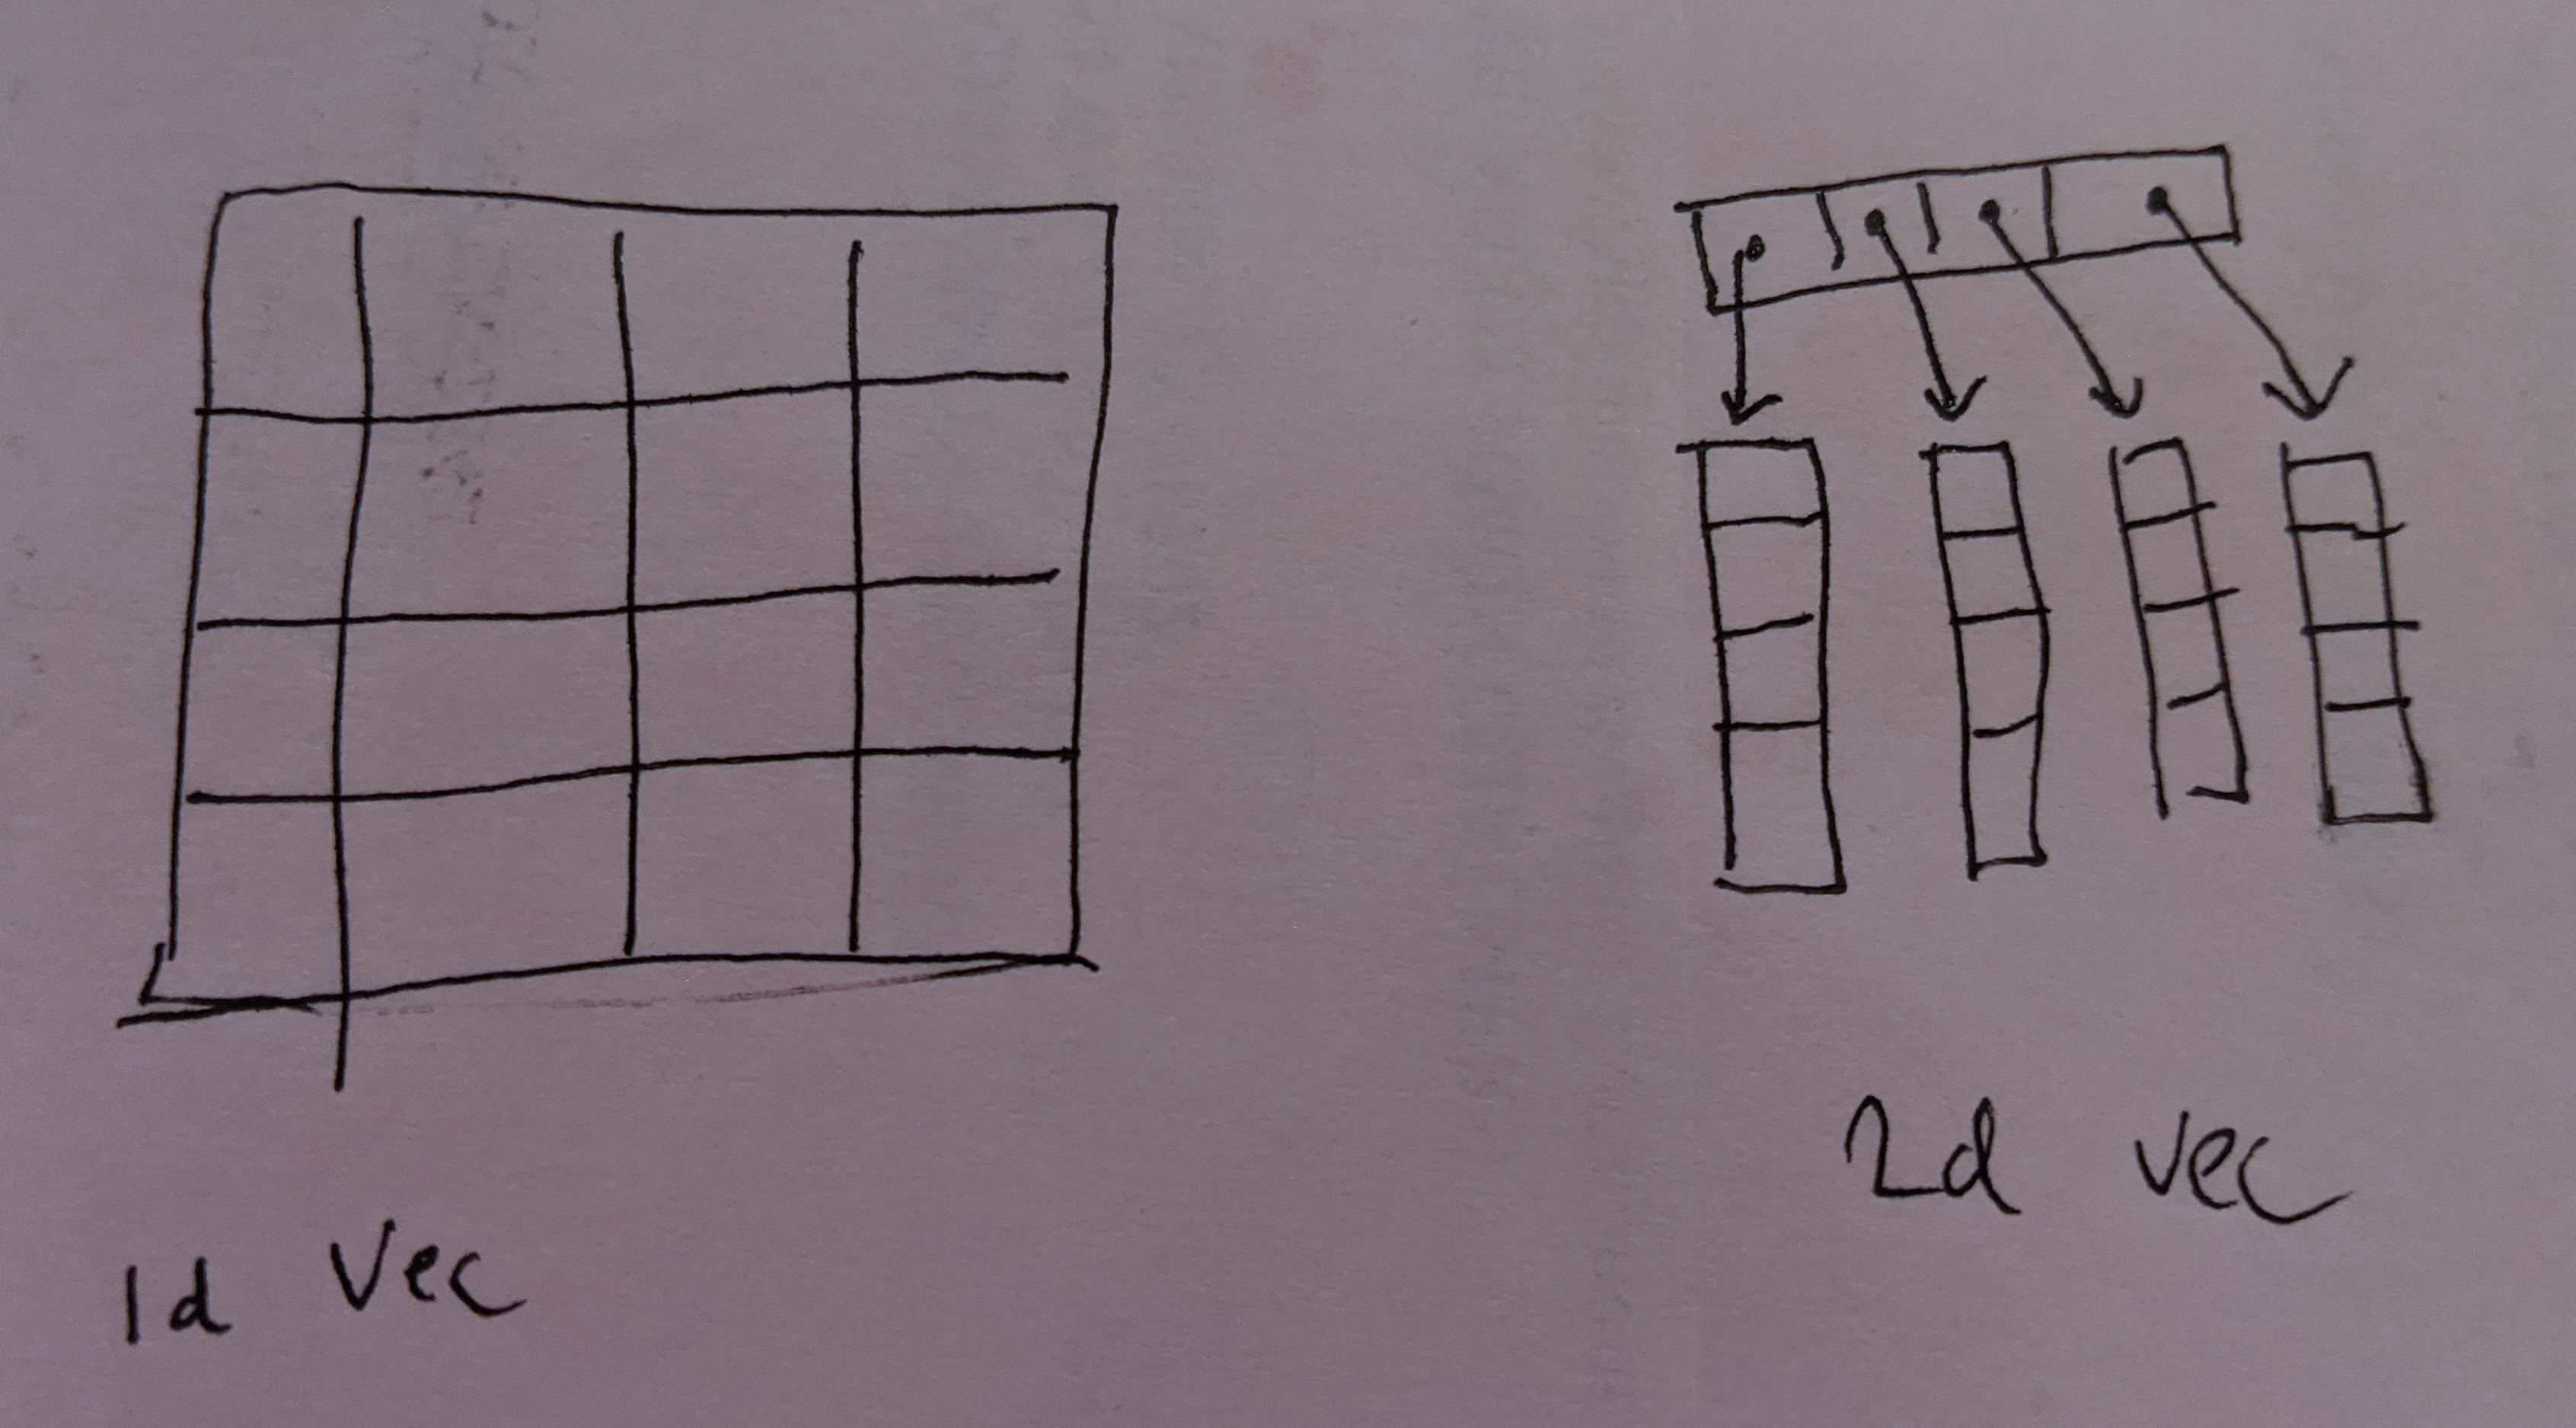 1d Vec
2d vec